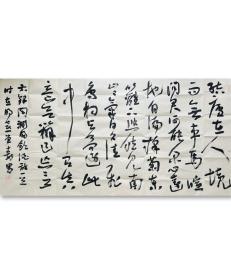 结庐在人境
而无车马喧
问君何能尔心远
地自偏采菊东
篱下悠然见南
山山气日夕佳飞
鸟相与还此
中有真
意欲辩已忘言
录陶渊明饮酒诗一首
时在